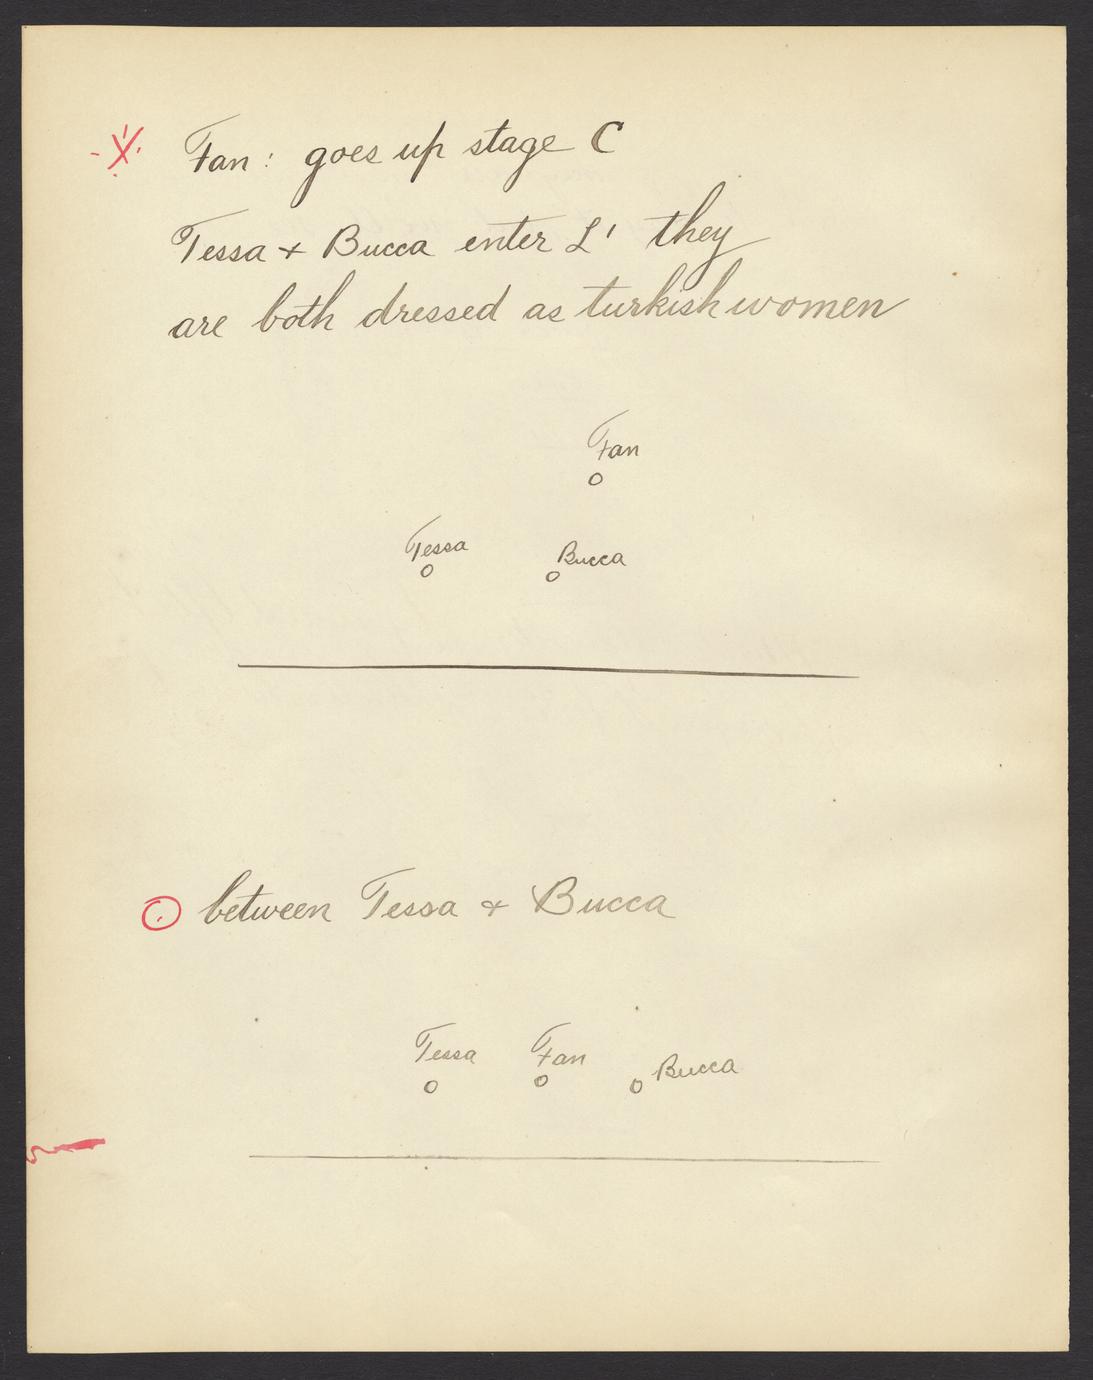 Fan: goes up stage C
Tessa + Bucca enter L' they
are both dressed as turkish women
Fan
Tessa Bucca
between Tessa & Bucca
Tessa Fan Bucca